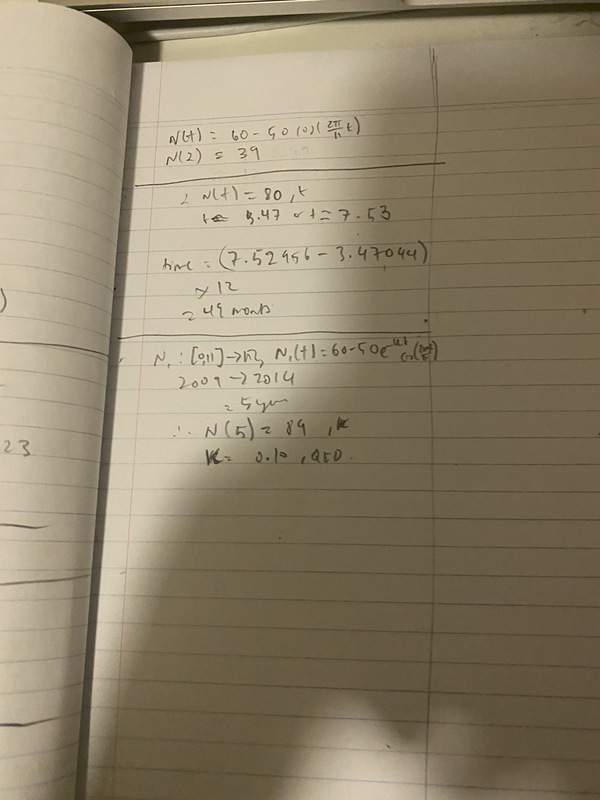 N(t) = 60 - 50 cos(2π/11 t)
N(2) = 39
∴ N(t) = 80, t
t = 3.47 or t = 7.53
time = (7.52956 - 3.47044)
× 12
= 49 months
N₁ : [0,11] → R, N₁(t) = 60 - 50e^-kt cos(2πt/11)
2009 → 2014
= 5 years
∴ N(5) = 89, k
k = 0.10, QED.
)
23